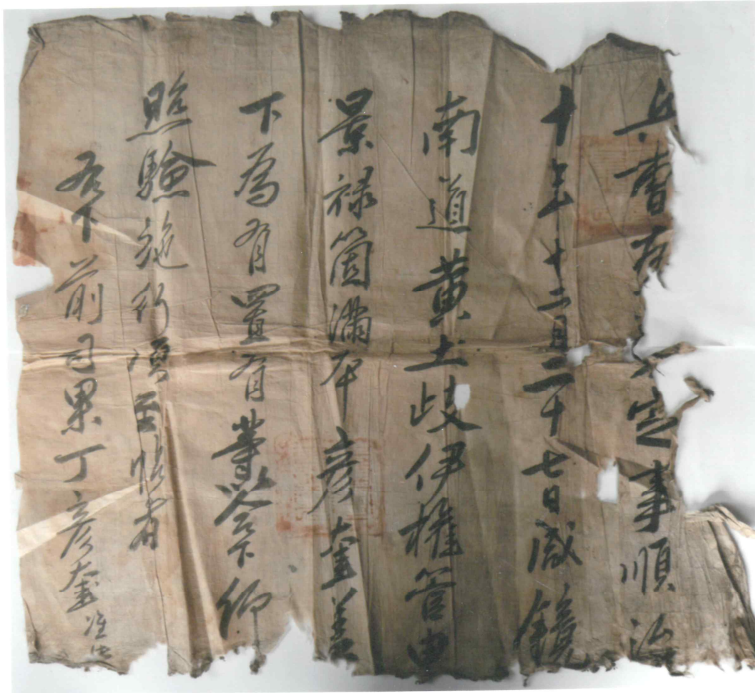 兵曹爲 定事順治
十 年十二月二十七日咸鏡
南道黃土岐伊權管申
景祿箇滿本 彦 差
下爲有置有等以合下仰
照驗施行須至帖者
右下前司果丁彦